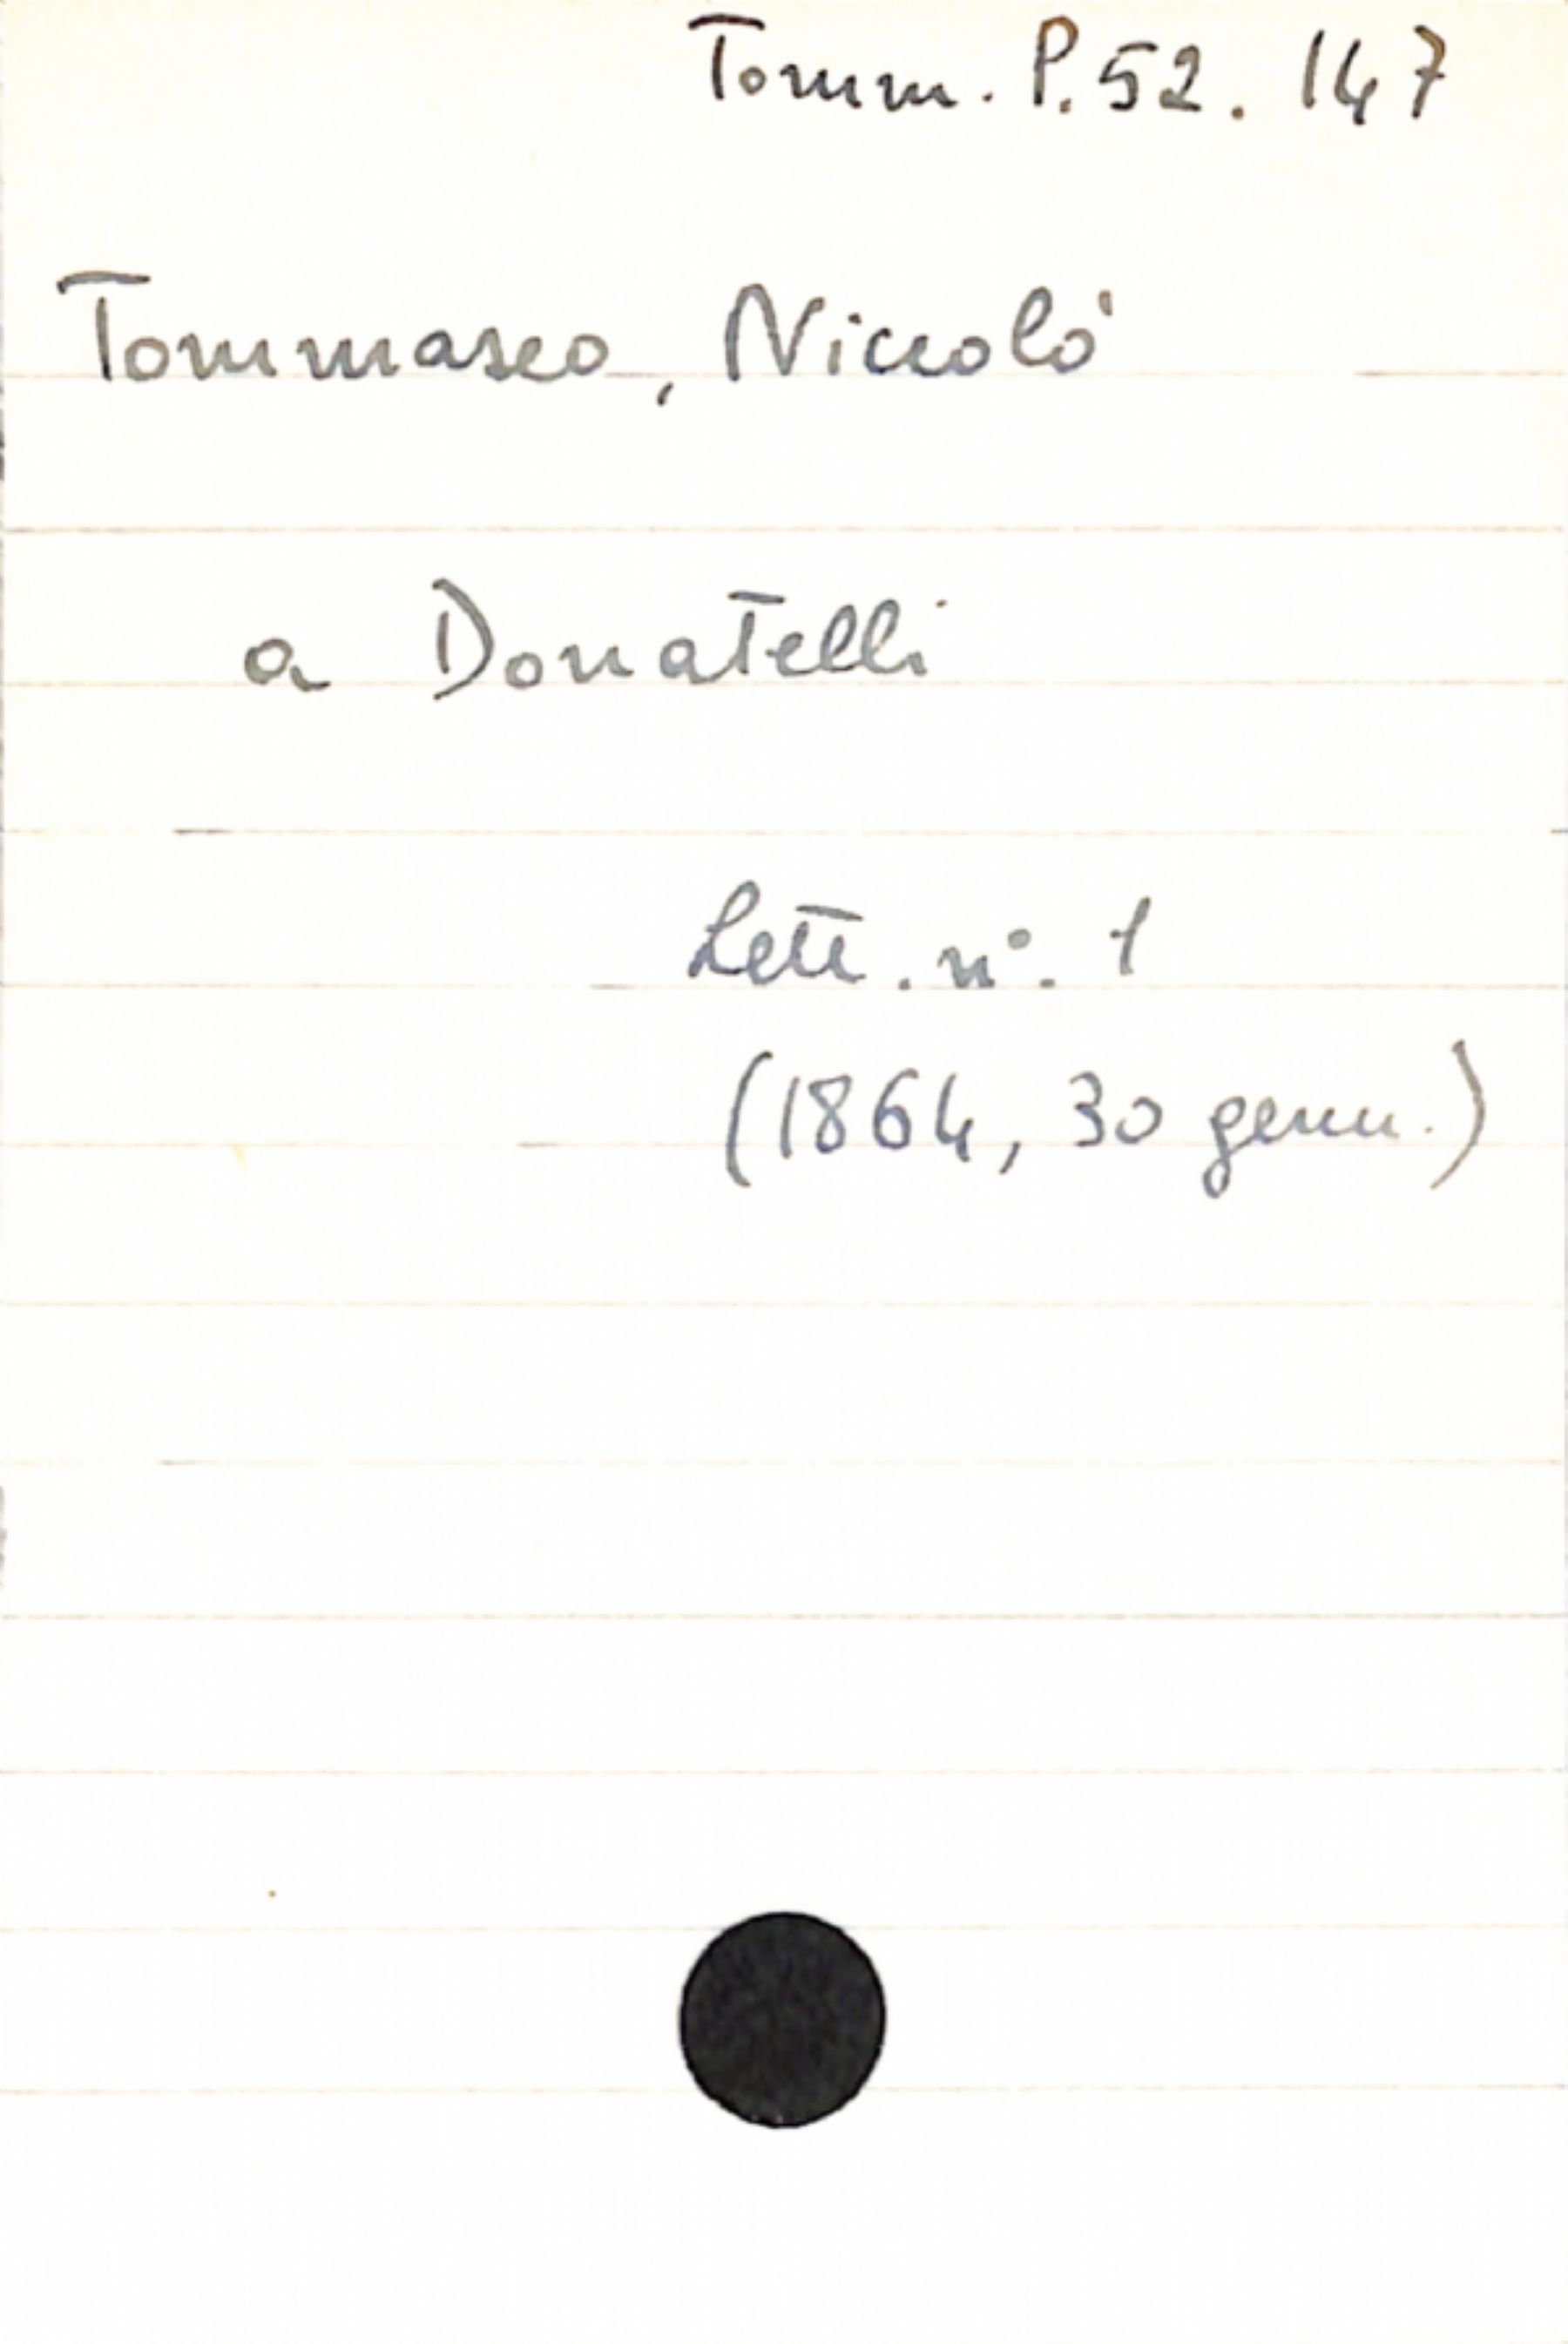 Tomm. P. 52. 147
Tommaseo, Niccolò
a Donatelli
Lett. n°. 1
(1864, 30 genn.)